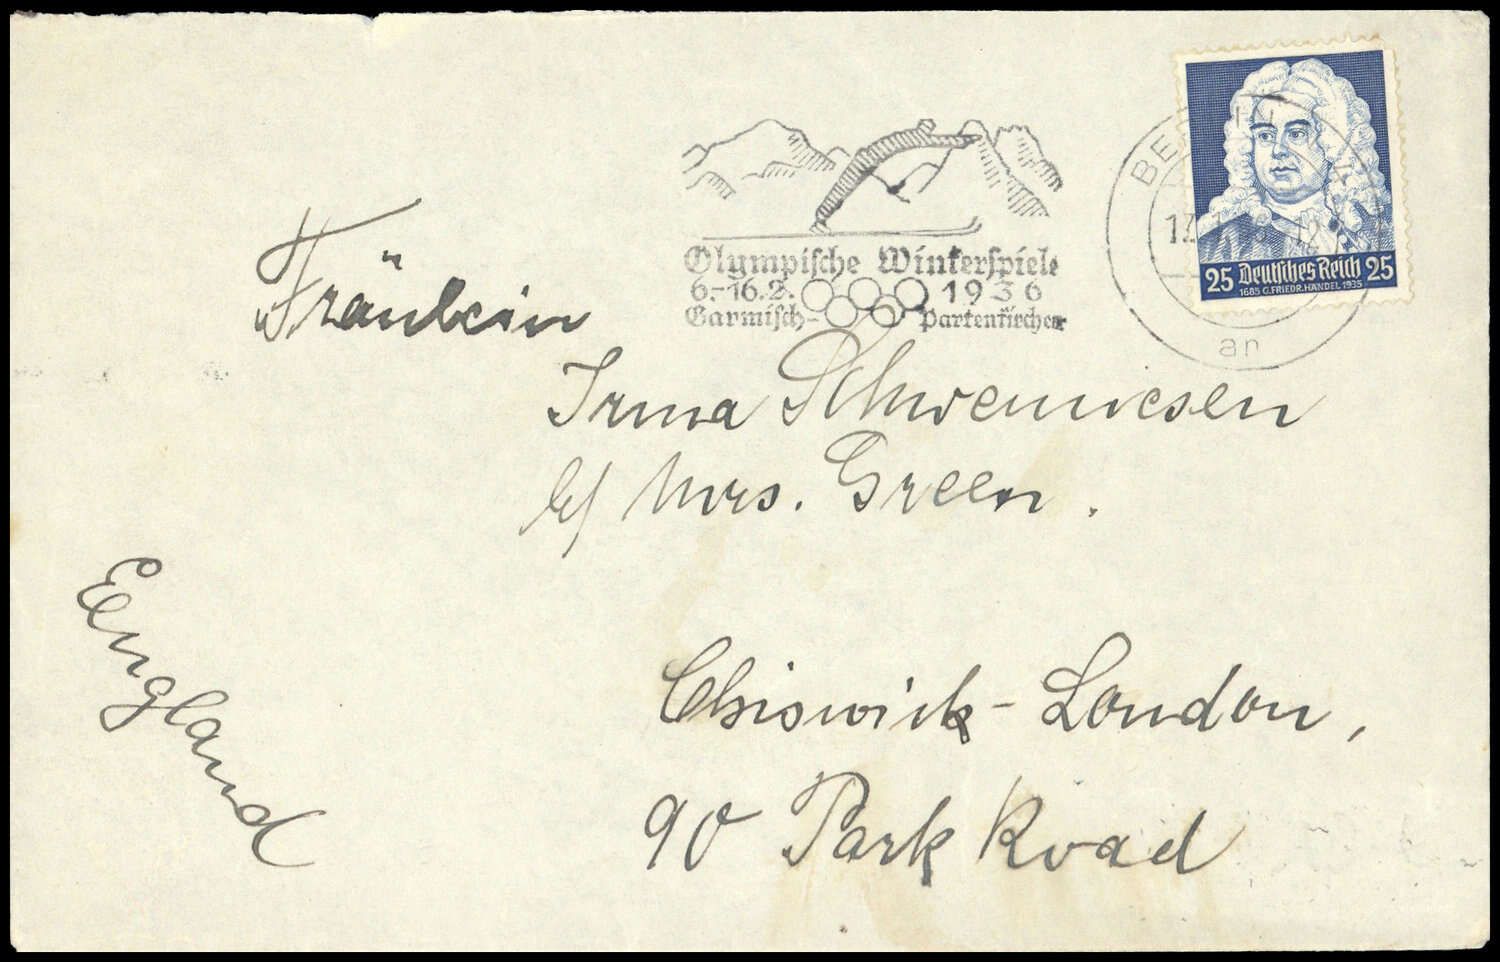 Olympische Winterspiele
6.-16.2. 1936
Garmisch-Partenkirchen
25 Deutsches Reich 25
1685 G. FRIEDR. HÄNDEL 1935
BERLIN
an
Fräulein
Irma Schwenniesen
c/ Mrs. Green.
Chiswick - London,
90 Park Road
England